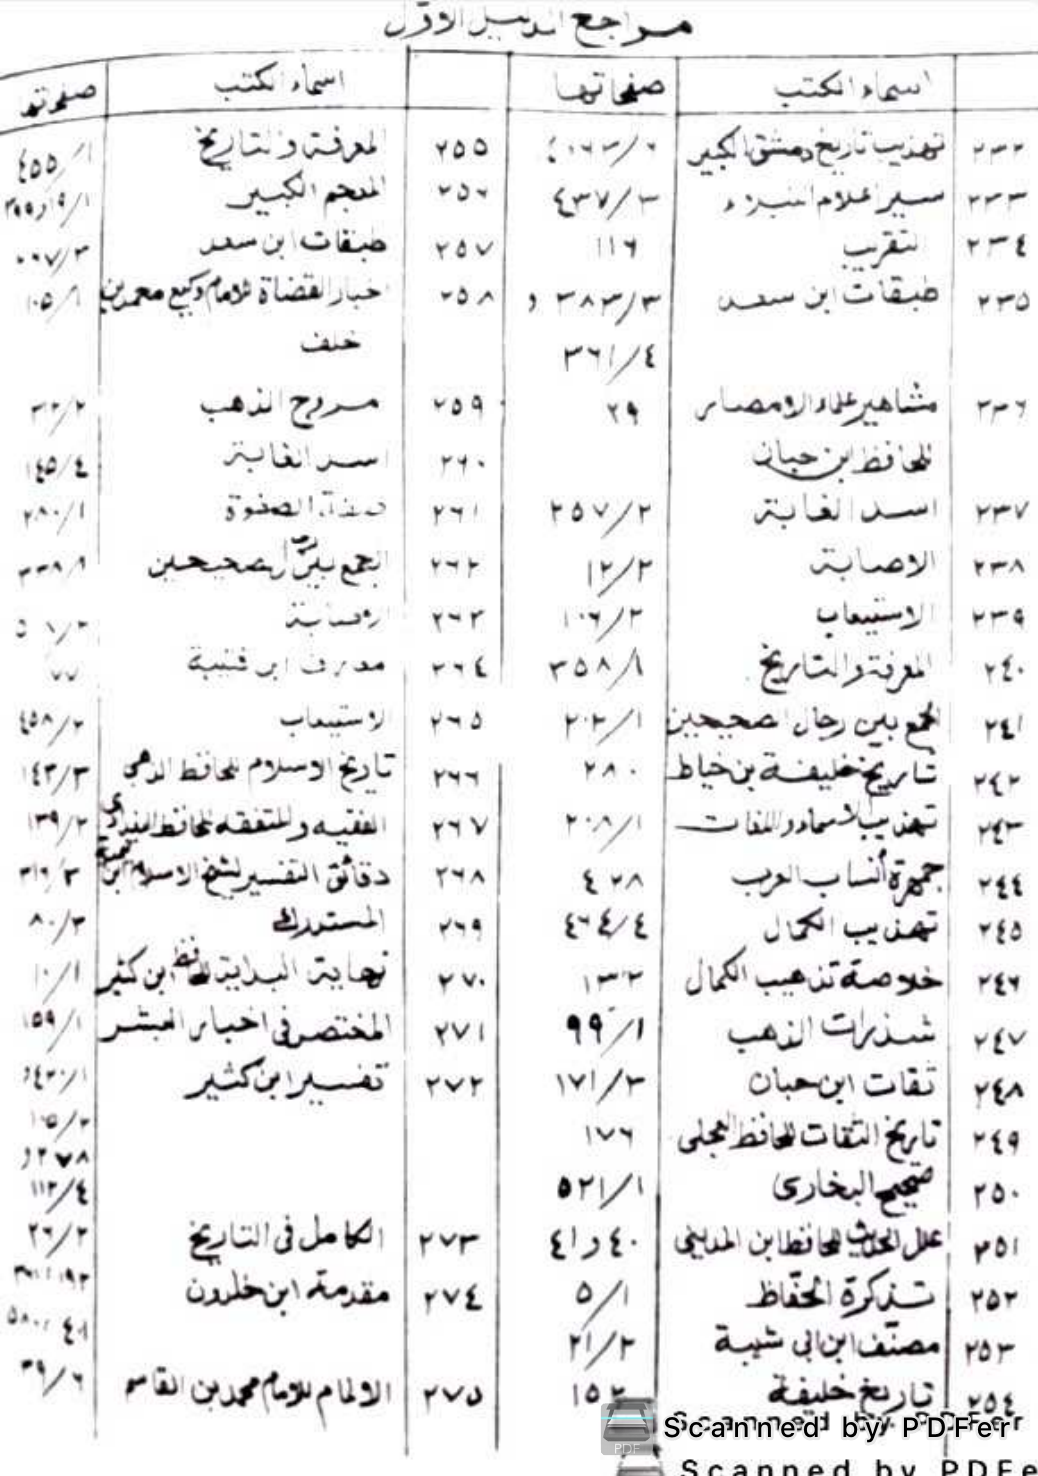 مراجع الدليل الاوّل
اسماء الكتب صفحاتها
٢٣٢ تهذيب تاريخ دمشق الكبير
٢٣٣ سير اعلام النبلاء ٤٣٧/٣
٢٣٤ التقريب ١١٦
٢٣٥ طبقات ابن سعد ٣٨٣/٣ و
٣٦١/٤
٢٣٦ مشاهير علماء الامصار ٢٩
للحافظ ابن حبان
٢٣٧ اسد الغابة ٢٥٧/٢
٢٣٨ الاصابة ١٢/٢
٢٣٩ الاستيعاب ١٠٦/٢
٢٤٠ المعرفة والتاريخ ٣٥٨/١
٢٤١ الجمع بين رجال الصحيحين ٢٠٢/١
٢٤٢ تاريخ خليفة بن خياط ٢٨٠
٢٤٣ تهذيب الاسماء واللغات ٢٠٨/١
٢٤٤ جمهرة أنساب العرب ٤٢٨
٢٤٥ تهذيب الكمال ٤٦٤/٤
٢٤٦ خلاصة تذهيب الكمال ١٣٢
٢٤٧ شذرات الذهب ٩٩/١
٢٤٨ ثقات ابن حبان ١٧١/٣
٢٤٩ تاريخ الثقات للحافظ العجلى ١٧٦
٢٥٠ صحيح البخارى ٥٢١/١
٢٥١ علل الحديث للحافظ ابن المدينى ٤٠ و ٤١
٢٥٢ تذكرة الحفاظ ٥/١
٢٥٣ مصنّف ابن ابى شيبة ٢١/٢
٢٥٤ تاريخ خليفة ١٥٢
اسماء الكتب صفحاتها
٢٥٥ المعرفة والتاريخ ٤٥٥/١
٢٥٦ المعجم الكبير
٢٥٧ طبقات ابن سعد
٢٥٨ اخبار القضاة للامام وكيع محمد بن ١٠٥/١
خلف
٢٥٩ مروج الذهب ٣٢/٢
٢٦٠ اسد الغابة ١٤٥/٤
٢٦١ صفة الصفوة ٢٨٠/١
٢٦٢ الجمع بين رجال الصحيحين ٣٣٨/١
٢٦٣ الاصابة
٢٦٤ معارف ابن قتيبة ٧٧
٢٦٥ الاستيعاب ٤٥٨/٢
٢٦٦ تاريخ الاسلام للحافظ الذهبى ١٤٣/٣
٢٦٧ الفقيه والمتفقه للحافظ البغدادى ١٣٩/٢
٢٦٨ دقائق التفسير لشيخ الاسلام ابن تيمية ٣١٦/٣
٢٦٩ المستدرك ٨٠/٣
٢٧٠ نهاية البداية للحافظ ابن كثير ١٠/١
٢٧١ المختصر فى اخبار البشر ١٥٩/١
٢٧٢ تفسير ابن كثير ٤٢٠/١ و
١٠٥/٢
٢٧٨ و
١١٢/٤
٢٧٣ الكامل فى التاريخ ٢٦/٢
٢٧٤ مقدمة ابن خلدون
٢٧٥ الالمام للامام محمد بن القاسم ٣٩/٦
Scanned by PDFer
Scanned by PDFe
PDF